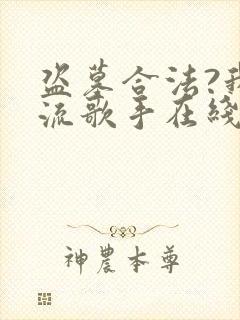 盗墓合法?我
流歌手在綫
神農本尊